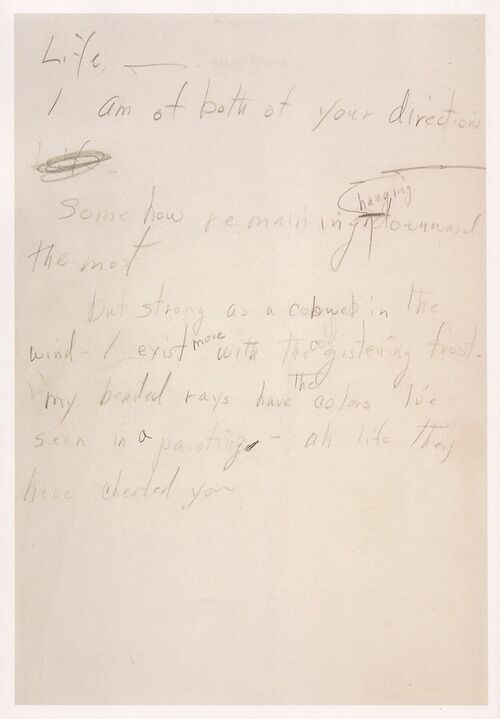 Life, —
I am of both of your directions
Somehow remaining hanging downward
the most
but strong as a cobweb in the
wind - I exist more with the cold glistening frost.
my beaded rays have the colors I've
seen in a painting - ah life they
have cheated you